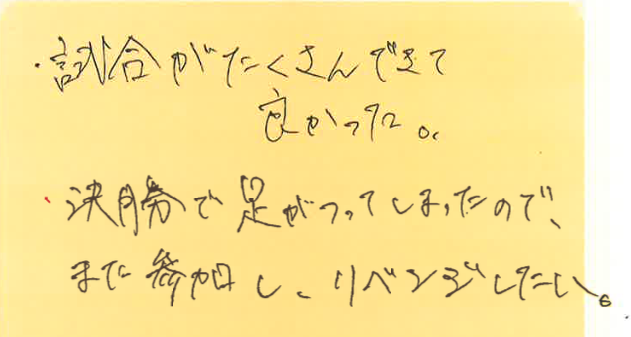 ・試合がたくさんできて
良かった。
・決勝で足がつってしまったので、
また参加し、リベンジしたい。